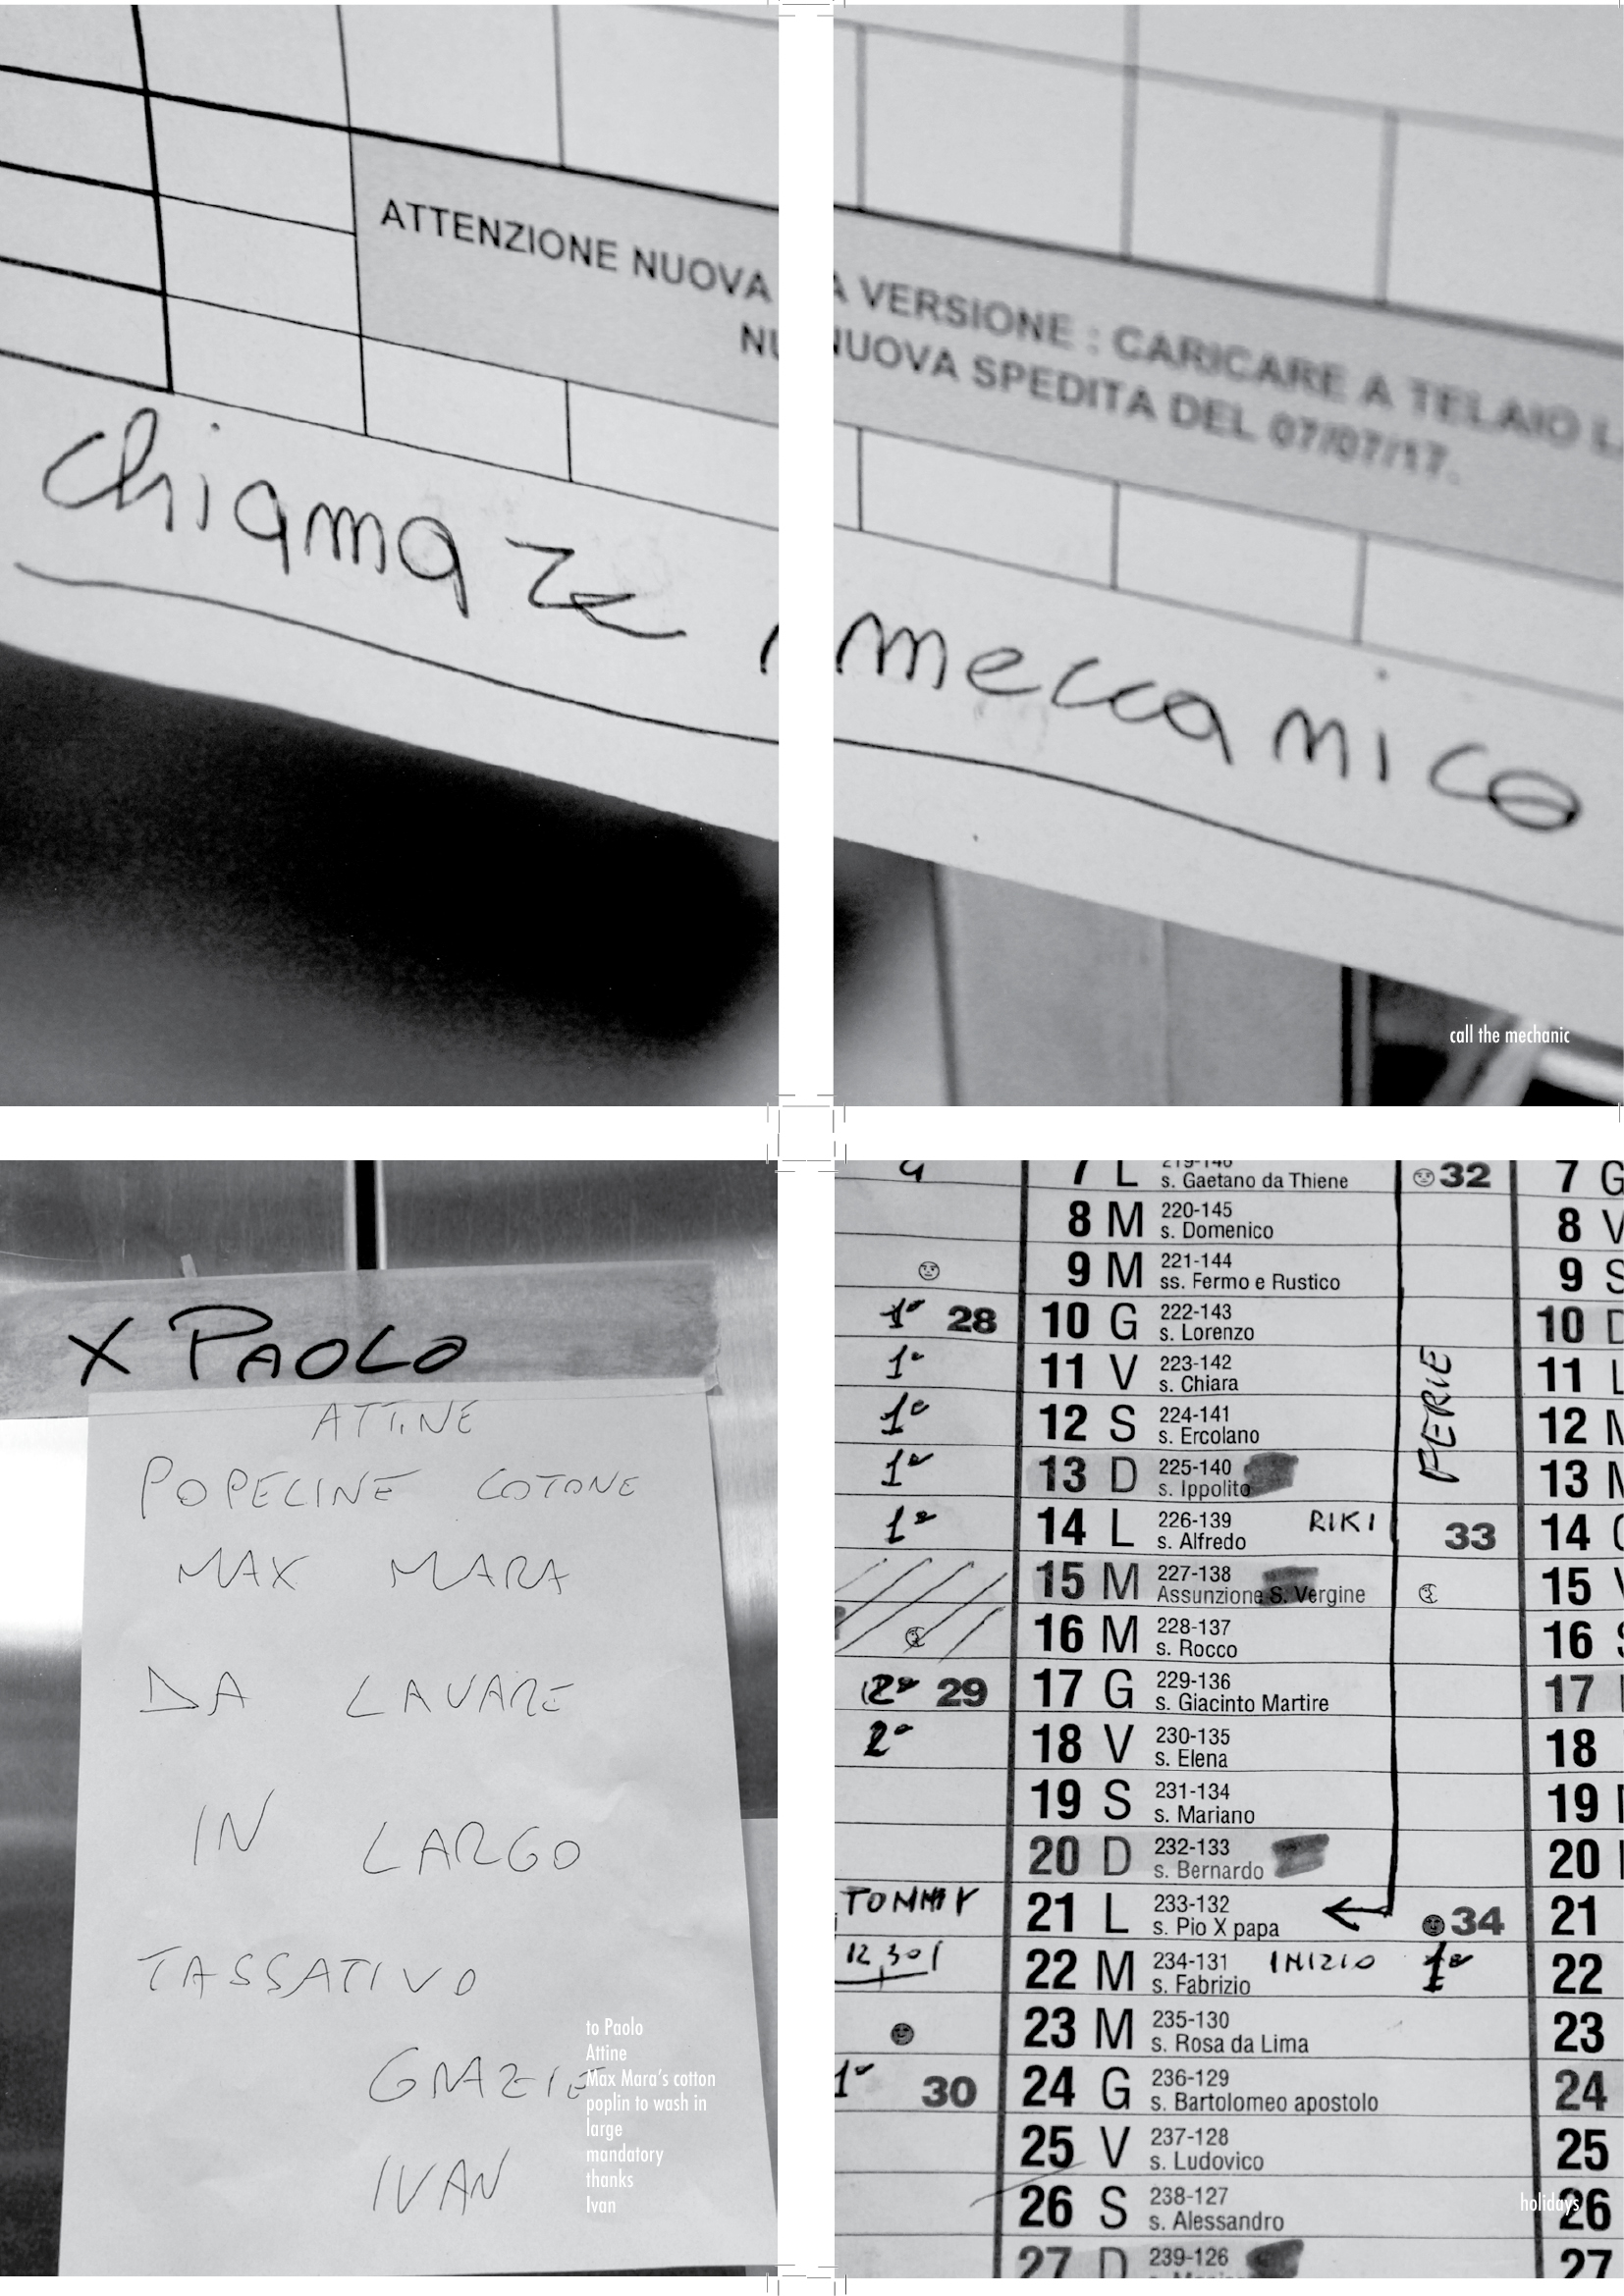 ATTENZIONE NUOVA VERSIONE : CARICARE A TELAIO L
NUOVA SPEDITA DEL 07/07/17.
chiamare meccanico
call the mechanic
X PAOLO
ATTINE
POPELINE COTONE
MAX MARA
DA LAVARE
IN LARGO
TASSATIVO
GRAZIE
IVAN
to Paolo
Attine
Max Mara's cotton
poplin to wash in
large
mandatory
thanks
Ivan
7 L 219-146 s. Gaetano da Thiene 32 7 G
8 M 220-145 s. Domenico 8 V
9 M 221-144 ss. Fermo e Rustico 9 S
1° 28 10 G 222-143 s. Lorenzo 10 D
1° 11 V 223-142 s. Chiara 11 L
1° 12 S 224-141 s. Ercolano 12 M
1° 13 D 225-140 s. Ippolito 13 M
FERIE
1° 14 L 226-139 s. Alfredo RIKI 33 14 G
15 M 227-138 Assunzione S. Vergine 15 V
16 M 228-137 s. Rocco 16 S
2° 29 17 G 229-136 s. Giacinto Martire 17
2° 18 V 230-135 s. Elena 18
19 S 231-134 s. Mariano 19
20 D 232-133 s. Bernardo 20
TOMMY 21 L 233-132 s. Pio X papa 34 21
12,30 22 M 234-131 s. Fabrizio INIZIO 1° 22
23 M 235-130 s. Rosa da Lima 23
1° 30 24 G 236-129 s. Bartolomeo apostolo 24
25 V 237-128 s. Ludovico 25
26 S 238-127 s. Alessandro 26
holidays
27 D 239-126 27